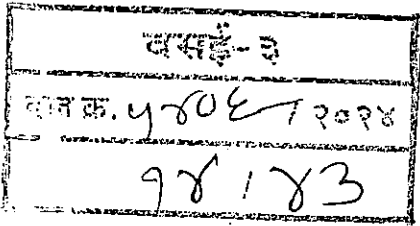 वसई-३
दस्त क्र. ५४०६/२०२४
१४/४३